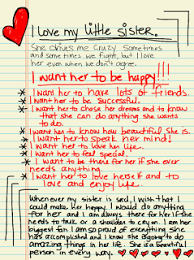 I love my little sister.
She drives me crazy sometimes
and some times we fight, but I love
her even when we don't agree.
I want her to be happy!!!
* I want her to have lots of friends.
* I want her to be successful.
* I want her to chose her dreams and to know
that she can do anything she wants
to do.
* I want her to know how beautiful she is.
* I want her to speak her mind!
* I want her to love her life.
* I want her to feel special.
* I want to be there for her if she ever
needs anything.
* I want her to love herself and to
love and enjoy life.
Whenever my sister is sad, I wish that I
could make her happy. I would do anything
for her and I am always there for her if she
needs to talk, or a shoulder to cry on. I am her
biggest fan. I am so proud of everything she
has accomplished and I know she is going to do
amazing things in her life. She is a beautiful
person in every way.